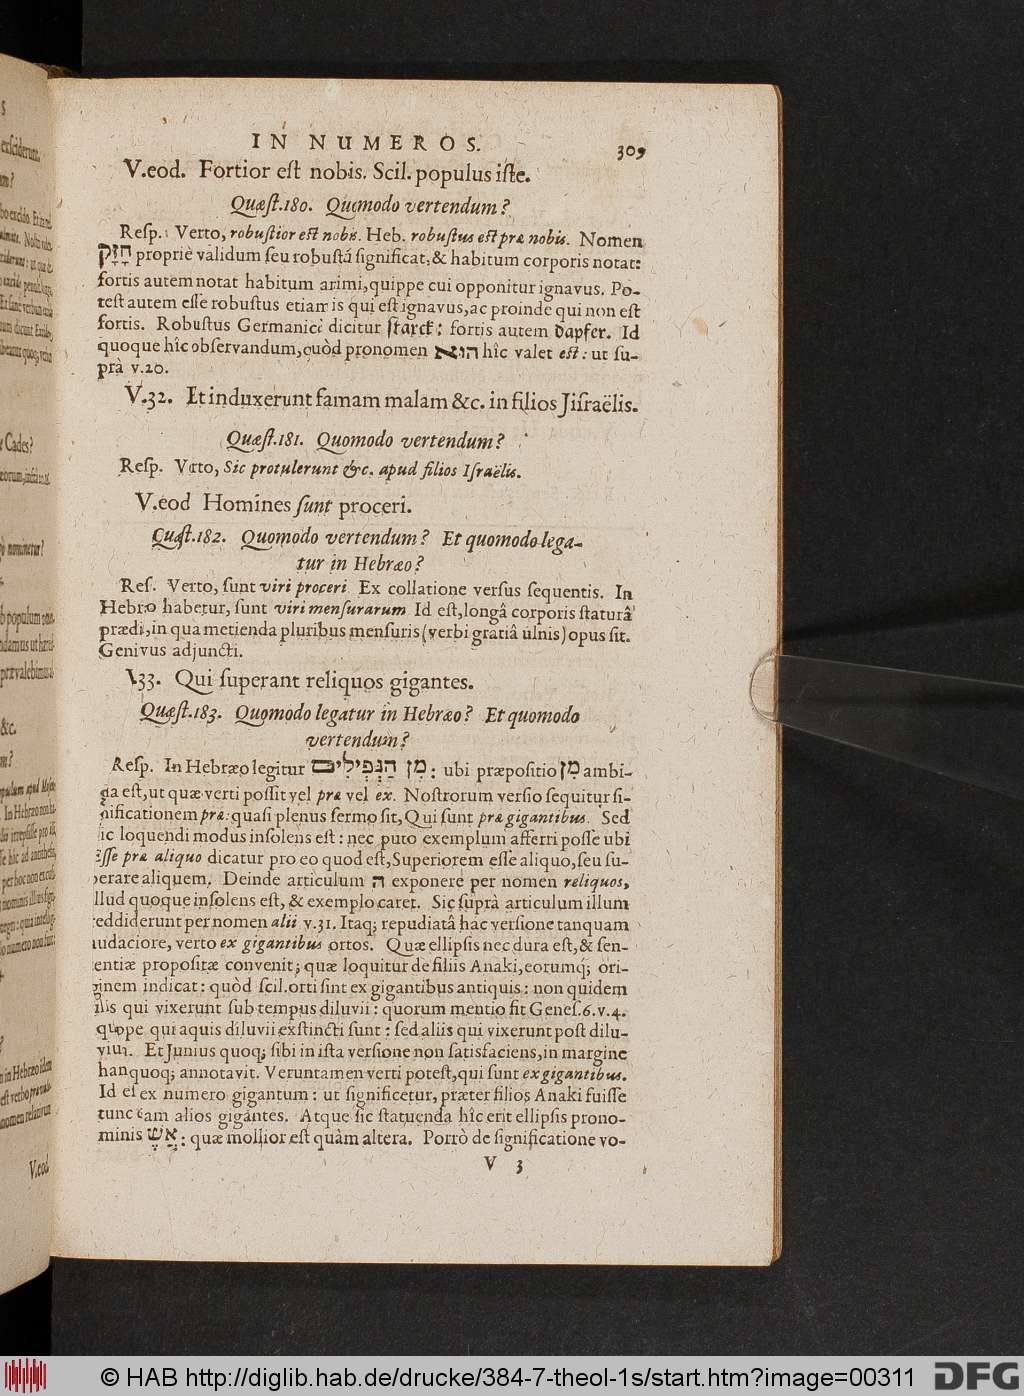 IN NUMEROS. 309
V.eod. Fortior est nobis. Scil. populus iste.
Quæst.180. Quomodo vertendum?
Resp.: Verto, robustior est nobis. Heb. robustus est præ nobis. Nomen
חָזָק propriè validum seu robustũ significat, & habitum corporis notat:
fortis autem notat habitum animi, quippe cui opponitur ignavus. Po-
test autem esse robustus etiam is qui est ignavus, ac proinde qui non est
fortis. Robustus Germanicè dicitur starck: fortis autem dapfer. Id
quoque hîc observandum, quòd pronomen הוא hîc valet est: ut su-
prà v.20.
V.32. Et induxerunt famam malam &c. in filios Jisraëlis.
Quæst.181. Quomodo vertendum?
Resp. Verto, Sic protulerunt &c. apud filios Israëlis.
V.eod Homines sunt proceri.
Quæst.182. Quomodo vertendum? Et quomodo lega-
tur in Hebræo?
Res. Verto, sunt viri proceri Ex collatione versus sequentis. In
Hebræo habetur, sunt viri mensurarum Id est, longâ corporis staturâ
prædi, in qua metienda pluribus mensuris (verbi gratiâ ulnis) opus sit.
Genivus adjuncti.
V.33. Qui superant reliquos gigantes.
Quæst.183. Quomodo legatur in Hebræo? Et quomodo
vertendum?
Resp. In Hebræo legitur מִן הַנְּפִילִים: ubi præpositio מִן ambi-
ga est, ut quæ verti possit vel præ vel ex. Nostrorum versio sequitur si-
gnificationem præ: quasi plenus sermo sit, Qui sunt præ gigantibus. Sed
ic loquendi modus insolens est: nec puto exemplum afferri posse ubi
Esse præ aliquo dicatur pro eo quod est, Superiorem esse aliquo, seu su-
perare aliquem. Deinde articulum ה exponere per nomen reliquos,
illud quoque insolens est, & exemplo caret. Sic suprà articulum illum
reddiderunt per nomen alii v.31. Itaq; repudiatâ hac versione tanquam
audaciore, verto ex gigantibus ortos. Quæ ellipsis nec dura est, & sen-
tentiæ propositæ convenit; quæ loquitur de filiis Anaki, eorumq́; ori-
ginem indicat: quòd scil. orti sint ex gigantibus antiquis: non quidem
illis qui vixerunt sub tempus diluvii: quorum mentio fit Genes.6.v.4.
quippe qui aquis diluvii exstincti sunt: sed aliis qui vixerunt post dilu-
vium. Et Junius quoq; sibi in ista versione non satisfaciens, in margine
hanc quoq; annotavit. Veruntamen verti potest, qui sunt ex gigantibus.
Id est ex numero gigantum: ut significetur, præter filios Anaki fuisse
tunc etiam alios gigantes. Atque sic statuenda hîc erit ellipsis prono-
minis אֲשֶׁר: quæ mollior est quàm altera. Porrò de significatione vo-
V 3
V.eod
© HAB http://diglib.hab.de/drucke/384-7-theol-1s/start.htm?image=00311
DFG